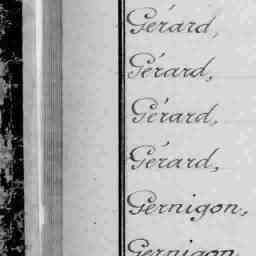 Gérard,
Gérard,
Gérard,
Gérard,
Gernigon,
Gernigon